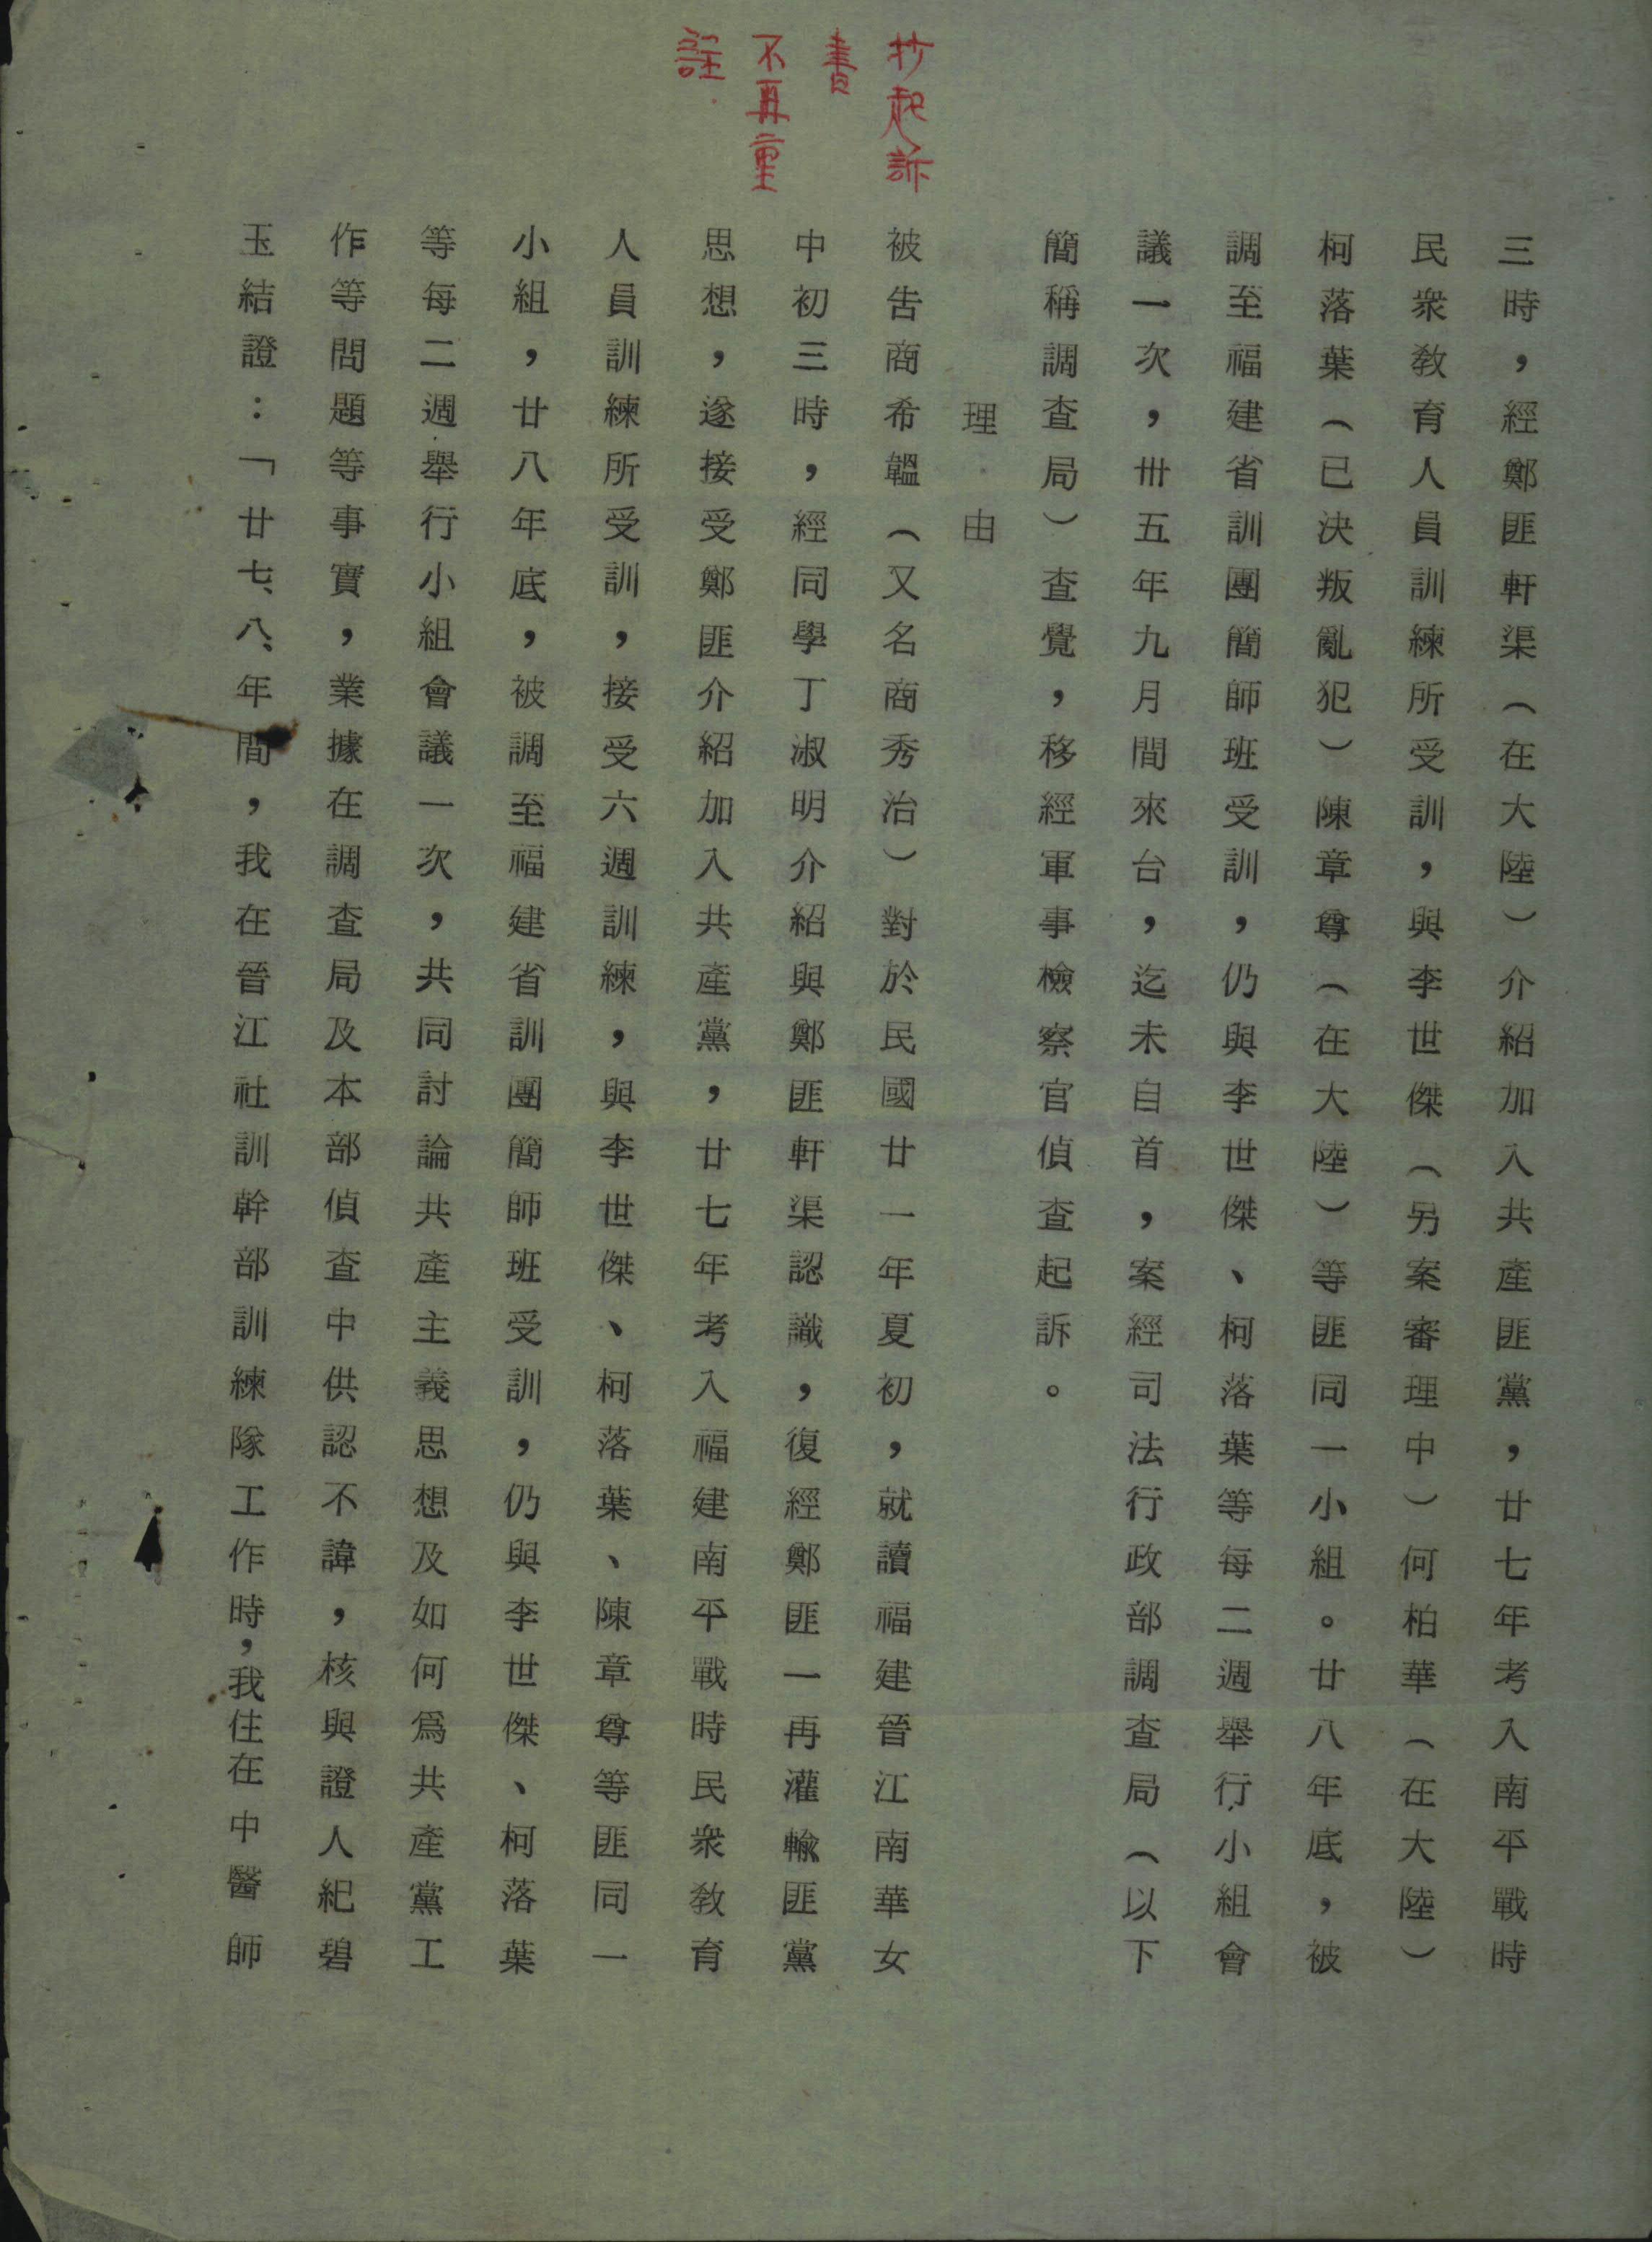 抄起訴
書
不再重
註
三時，經鄭匪軒渠（在大陸）介紹加入共產匪黨，廿七年考入南平戰時
民衆教育人員訓練所受訓，與李世傑（另案審理中）何柏華（在大陸）
柯落葉（已決叛亂犯）陳章尊（在大陸）等匪同一小組。廿八年底，被
調至福建省訓團簡師班受訓，仍與李世傑、柯落葉等每二週舉行小組會
議一次，卅五年九月間來台，迄未自首，案經司法行政部調查局（以下
簡稱調查局）查覺，移經軍事檢察官偵查起訴。
理由
被告商希韞（又名商秀治）對於民國廿一年夏初，就讀福建晉江南華女
中初三時，經同學丁淑明介紹與鄭匪軒渠認識，復經鄭匪一再灌輸匪黨
思想，遂接受鄭匪介紹加入共產黨，廿七年考入福建南平戰時民衆教育
人員訓練所受訓，接受六週訓練，與李世傑、柯落葉、陳章尊等匪同一
小組，廿八年底，被調至福建省訓團簡師班受訓，仍與李世傑、柯落葉
等每二週舉行小組會議一次，共同討論共產主義思想及如何爲共產黨工
作等問題等事實，業據在調查局及本部偵查中供認不諱，核與證人紀碧
玉結證：「廿七、八、年間，我在晉江社訓幹部訓練隊工作時，我住在中醫師